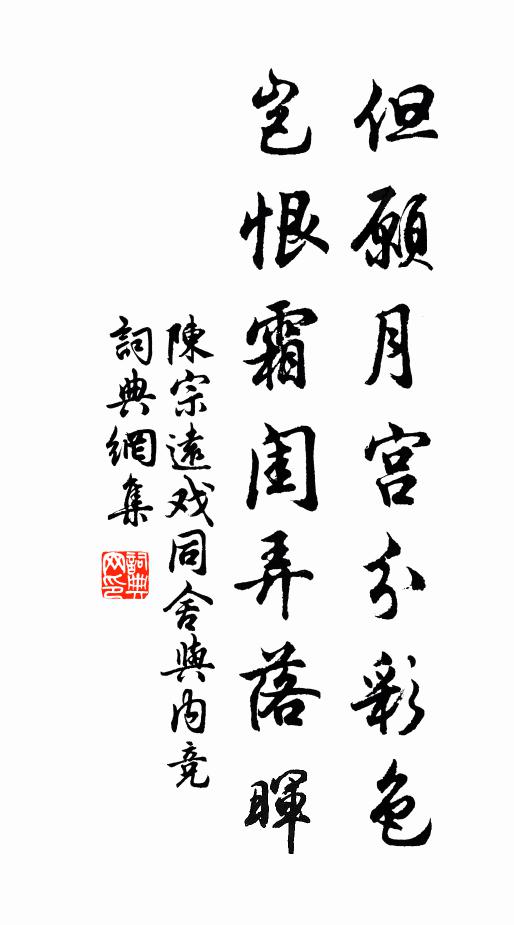 但願月宮分彩色
豈恨霜閨弄落暉
陳宗遠戏同舍與内竞
詞典網集
詞典网印